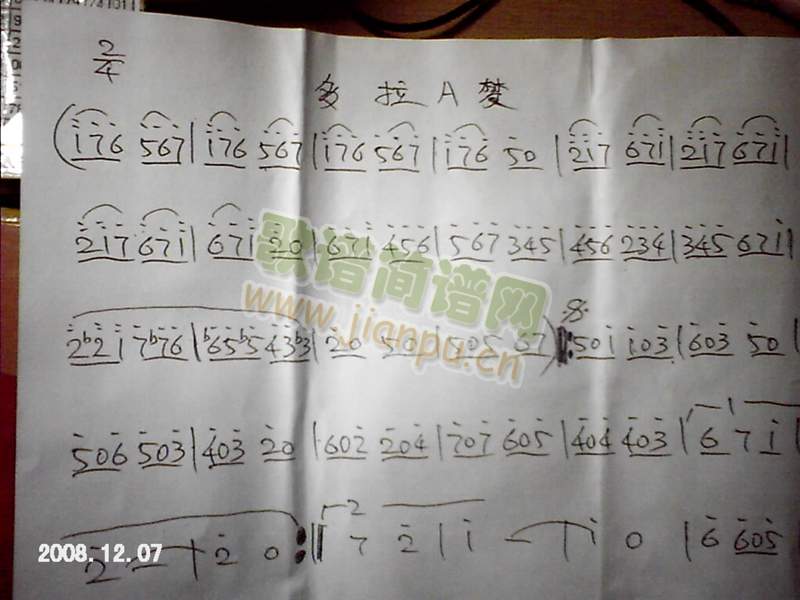 2/4
多拉A梦
(i76 567|i76 567|i76 567|i76 50|217 671|217 671|
217 671|671 20|671 456|567 345|456 234|345 671|
2b21 7b76|b65b5 43b3|20 50|505 67)‖:501 103|603 50|
506 503|403 20|602 204|707 605|404 403|6 7 1|
2 —|2 0:‖ 2 7 2|1 —|1 0|6 605
歌谱简谱网
www.jianpu.cn
2008.12.07